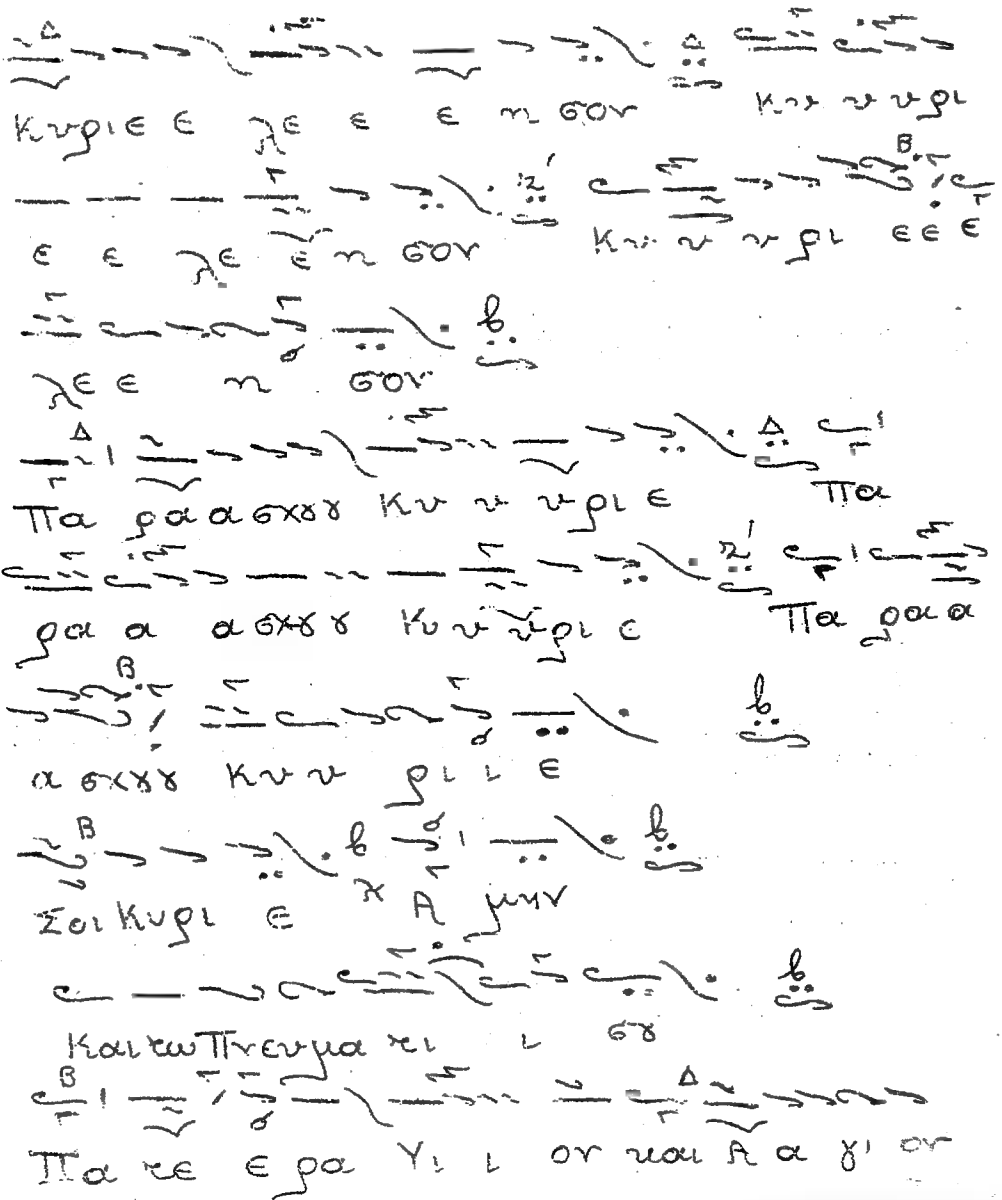 Κυριε ε λε ε ε η σον Κυ υ υ υρι
ε ε λε ε η σον Κυ υ υ ρι ε ε ε
λε ε η σον
Πα ρα α α σχου ου Κυ υ υ υρι ε Πα
ρα α α σχου ου Κυ υ υρι ε Πα ρα α
α σχου ου Κυ υ υ ρι ι ι ε
Σοι Κυρι ε Α μην
Και τω Πνευμα τι ι σου
Πα τε ε ρα Υι ι ον και Α α γι ον